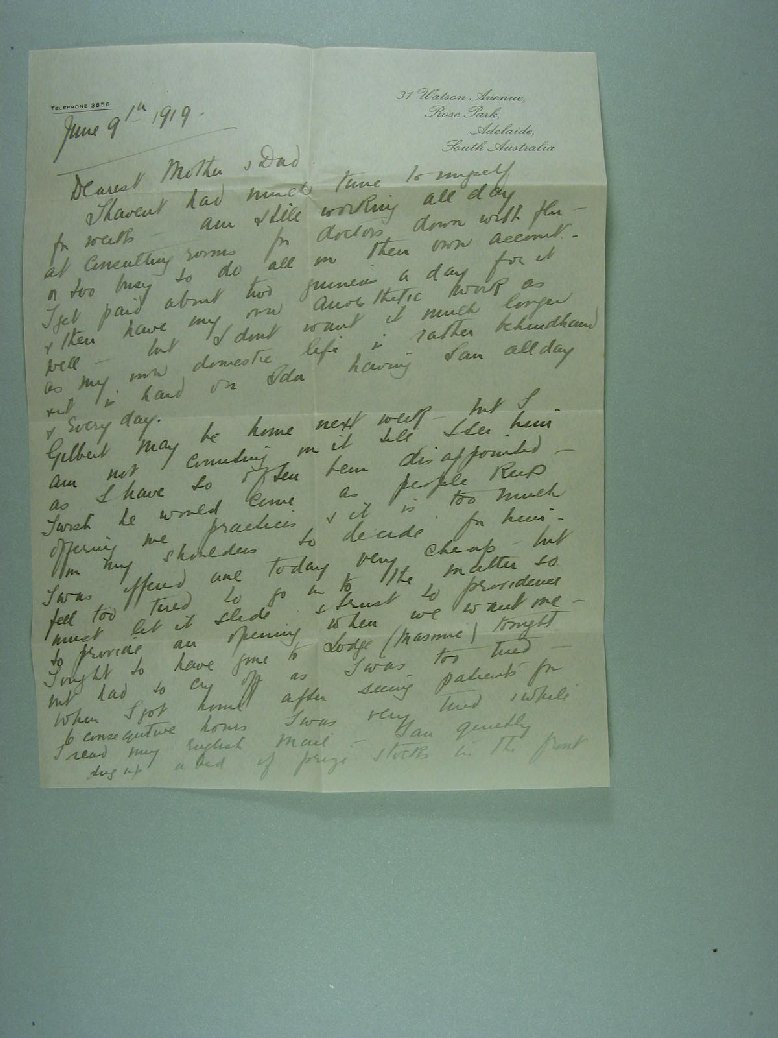 TELEPHONE 3858
31 Watson Avenue,
Rose Park,
Adelaide,
South Australia
June 9th 1919.
Dearest Mother & Dad
I havent had much time to myself
for weeks - am still working all day
at Consulting rooms for doctors down with flu -
or too busy to do all on their own account -
I get paid about two guineas a day for it
& then have my own Anaesthetic work as
well - but I dont want it much longer
as my own domestic life is rather behindhand
& it is hard on Ida having Ian all day
& every day.
Gilbert may be home next week - but I
am not counting on it till I see him
as I have so often been disappointed -
I wish he would come as people keep
offering me practices & it is too much
on my shoulders to decide for him -
I was offered one today very cheap - but
feel too tired to go into the matter so
must let it slide & trust to providence
to provide an opening when we want one -
I ought to have gone to Lodge (Masonic) tonight
but had to cry off as I was too tired -
When I got home after seeing patients for
6 consecutive hours I was very tired & while
I read my English Mail - Ian quietly
dug up a bed of prize stocks in the front